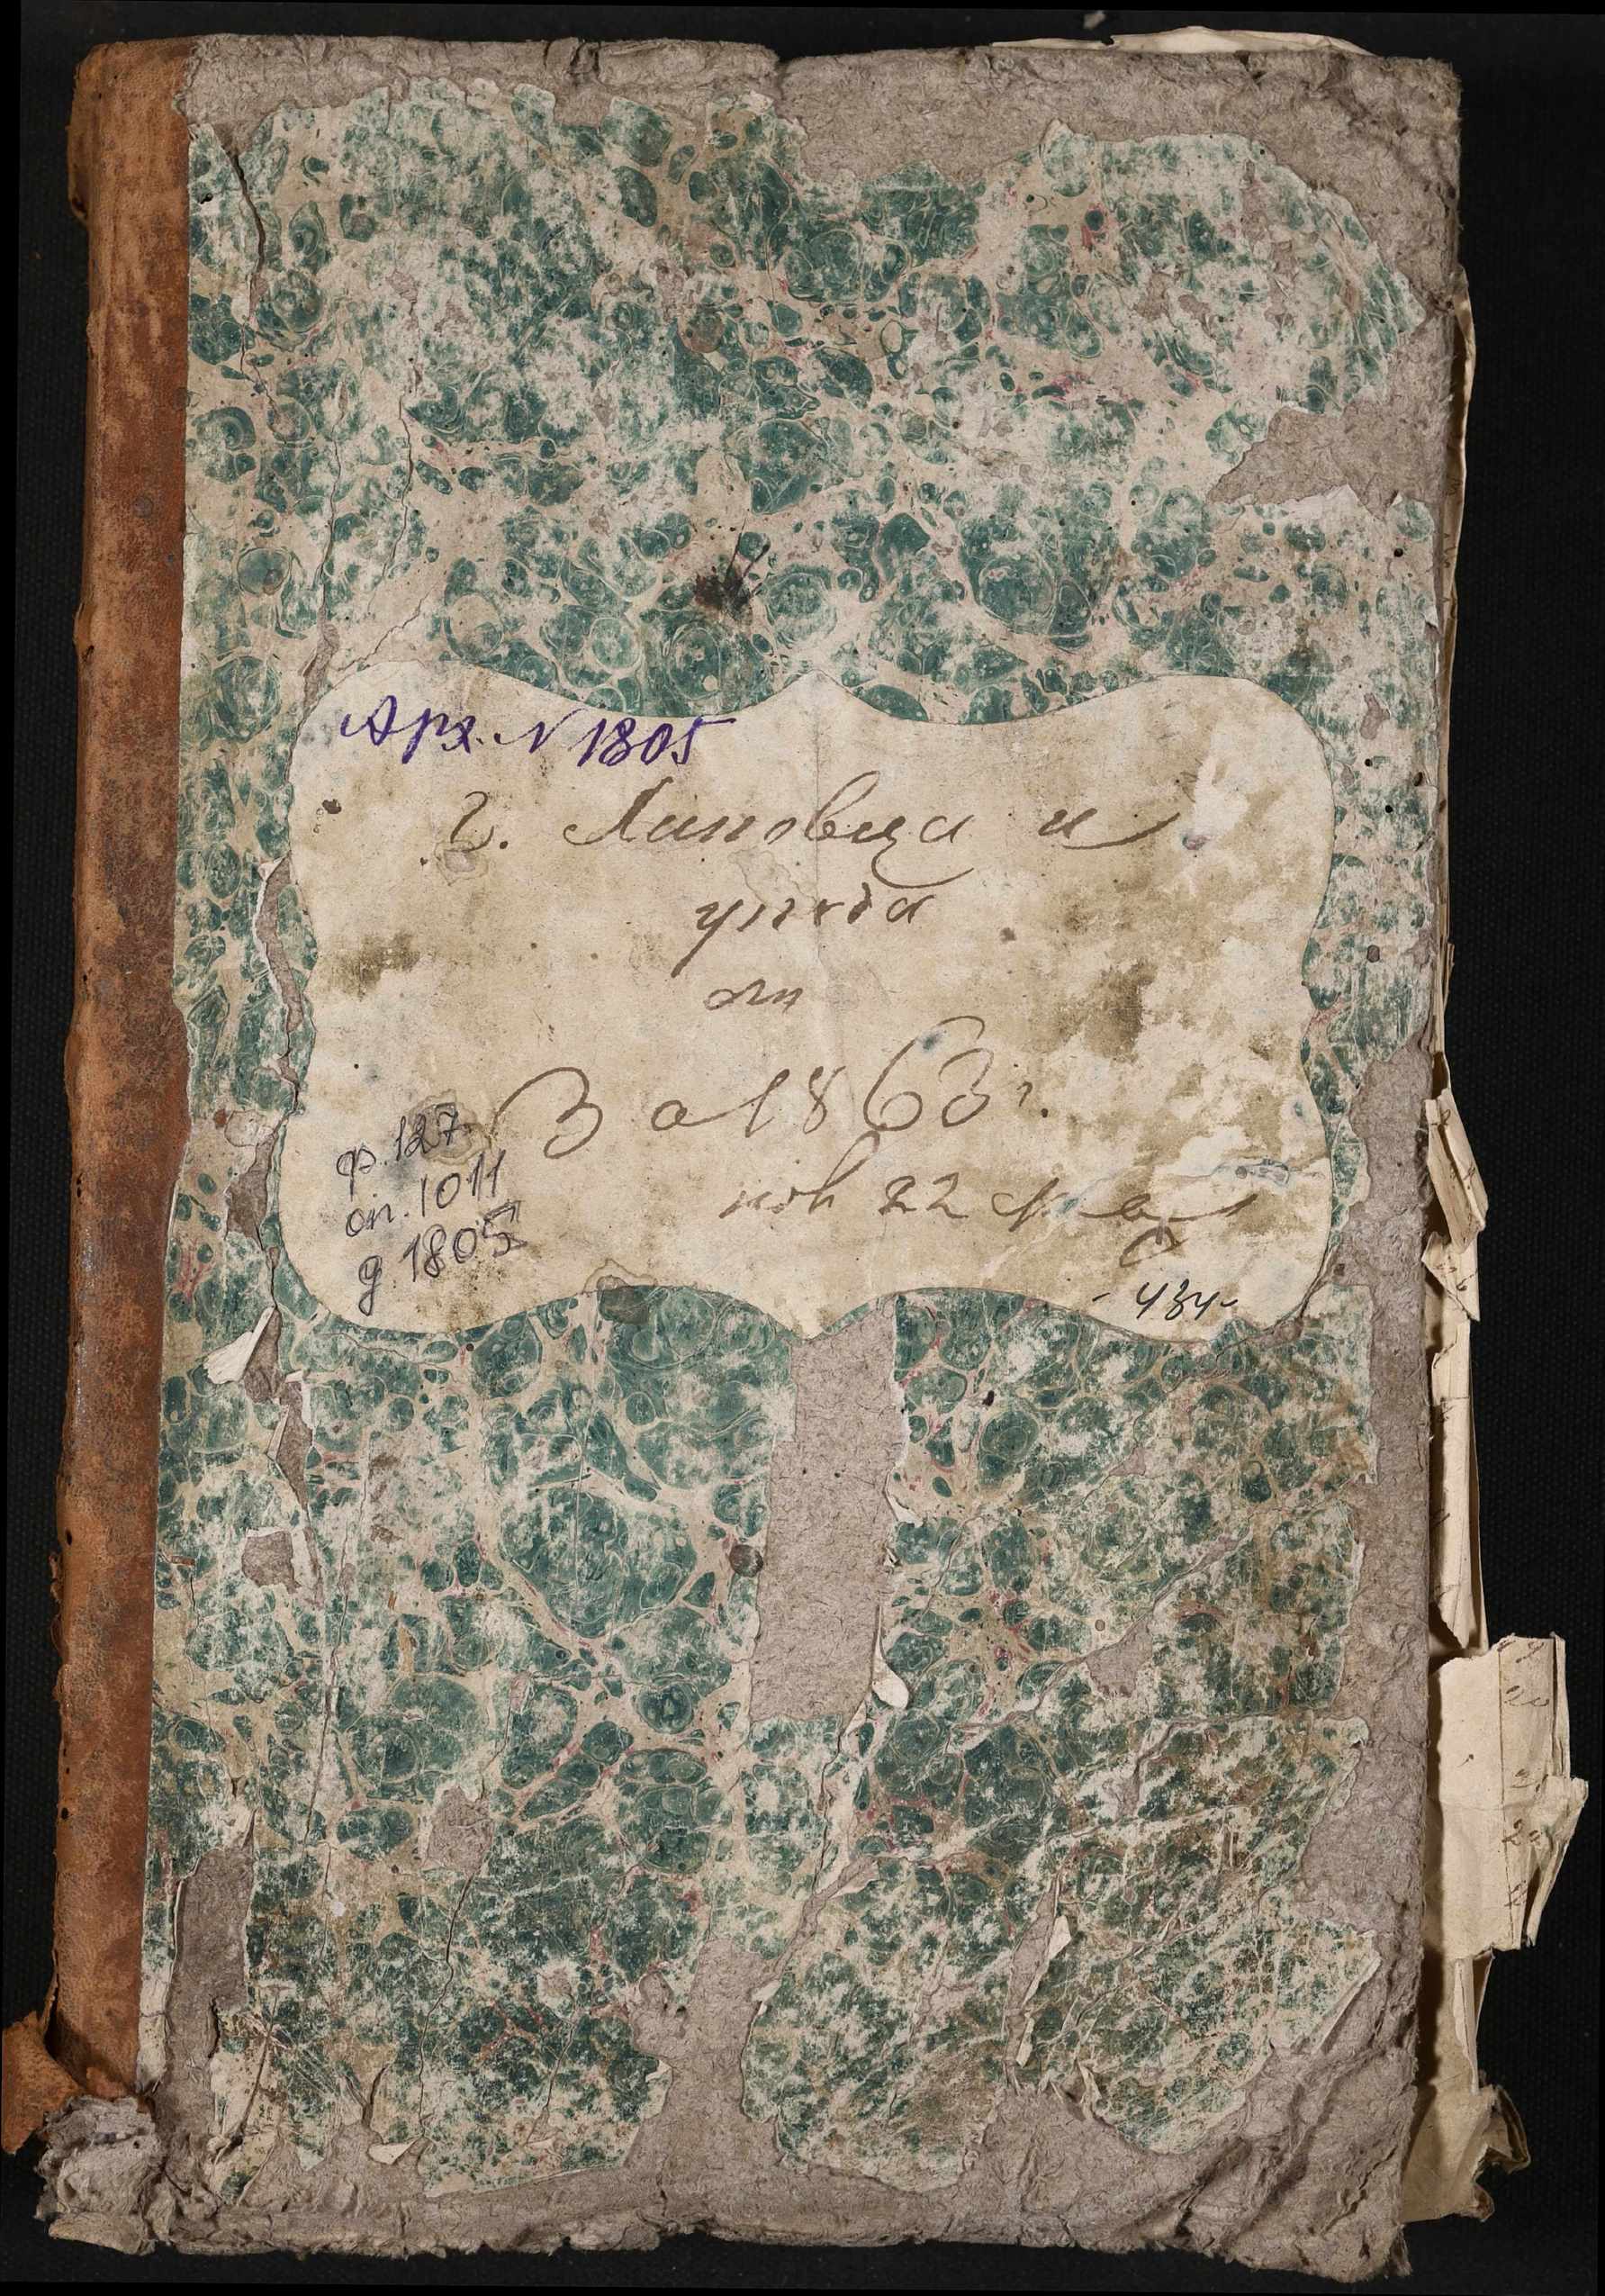 Арх. N 1805
г. Липовца и
уѣзда
за 1863 г.
ф. 127
оп. 1011
д. 1805
22
- 434 -